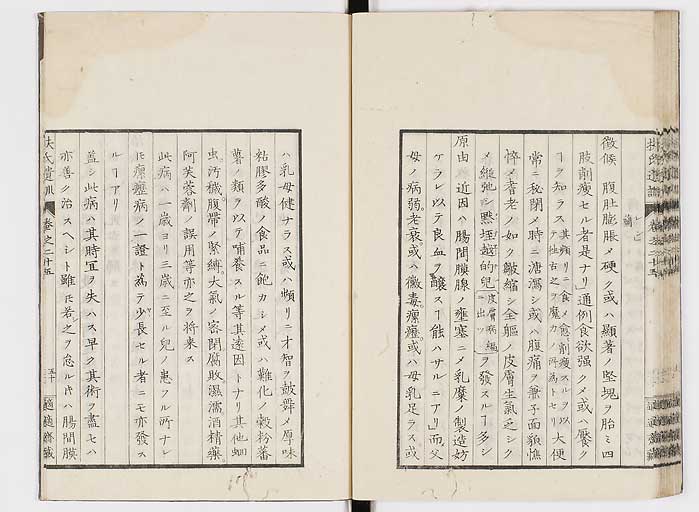 徴候 腹肚膨脹メ硬ク或ハ顕著ノ堅塊ヲ胎ミ四
肢削瘦セル者是ナリ通例食欲强クメ或ハ饜ク
ヿヲ知ラス其頻リニ食メ愈削瘦スルヲ以テ拙古之ヲ魔力ノ所為トセリ大便
常ニ秘閉メ時ニ溏瀉シ或ハ腹痛ヲ兼子面貌憔
悴メ耆老ノ如ク皺縮シ全軀ノ皮膚生氣乏シク
メ維弛シ
ヲ發スルヿ多シ
原由 近因ハ腸間膜腺ノ壅塞ニメ乳糜ノ製造妨
ケラレ以テ良血ヲ醸スヿ能ハサルニアリ而父
母ノ病弱老衰或ハ黴毒瘰癧或ハ母乳足ラス或
ハ乳母健ナラス或ハ頻リニ才智ヲ鼓舞メ厚味
粘膠多酸ノ食品ニ飽カシメ或ハ難化ノ穀粉蕃
薯ノ類ヲ以テ哺養スル等其遠因トナリ其他蛔
虫汚穢腹帶ノ緊縛大氣ノ密閉腐敗濕濡酒精藥
阿芙蓉劑ノ誤用等亦之ヲ將来ス
此病ハ一歳ヨリ三歳ニ至ル兒ノ患フル所ナレ
𪜈瘰癧病ノ一證ト為テ少ヤ長セル者ニモ亦發ス
ルヿアリ
蓋シ此病ハ其時宜ヲ失ハス早ク其術ヲ盡セハ
亦善ク治スヘシト雖𪜈若シ之ヲ怠ル𪜈ハ腸間膜
扶氏遺訓 巻之二十五 五十